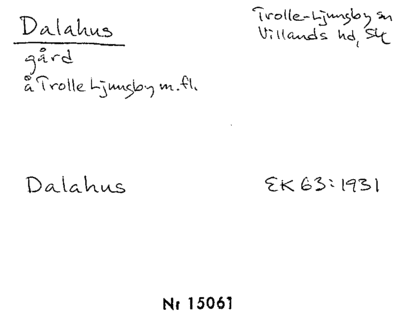 Dalahus
gård
å Trolle Ljungby m.fl.
Trolle-Ljungby sn
Villands hd, Sk
Dalahus
EK 63:1931
Nr 15061